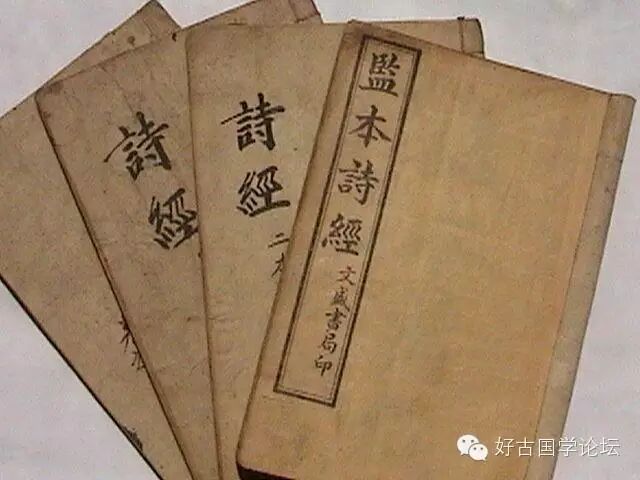 監本詩經
文盛書局印
詩經
二本
詩經
好古国学论坛